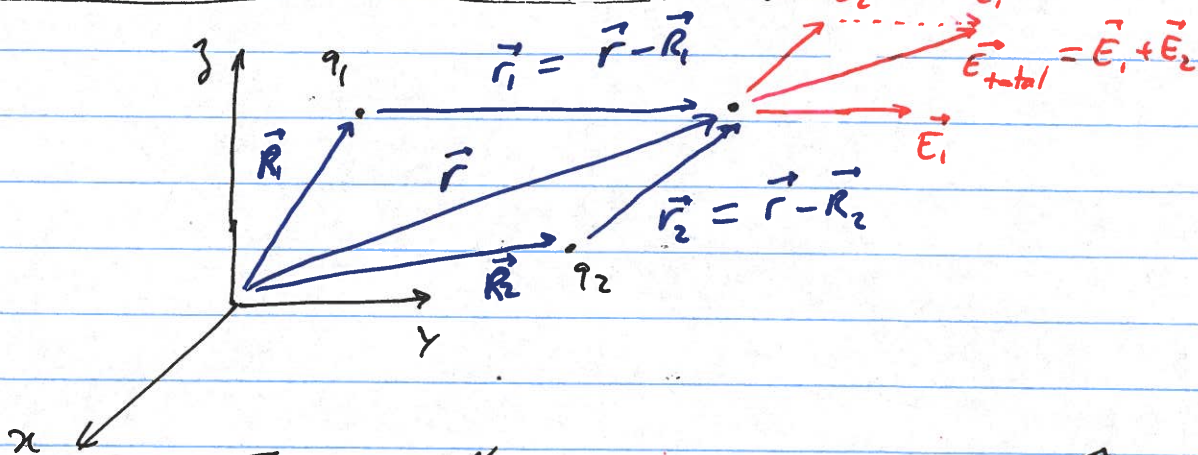 z
q₁
r⃗₁ = r⃗ - R⃗₁
E⃗total = E⃗₁ + E⃗₂
E⃗₁
R⃗₁
r⃗
r⃗₂ = r⃗ - R⃗₂
R⃗₂
q₂
y
x